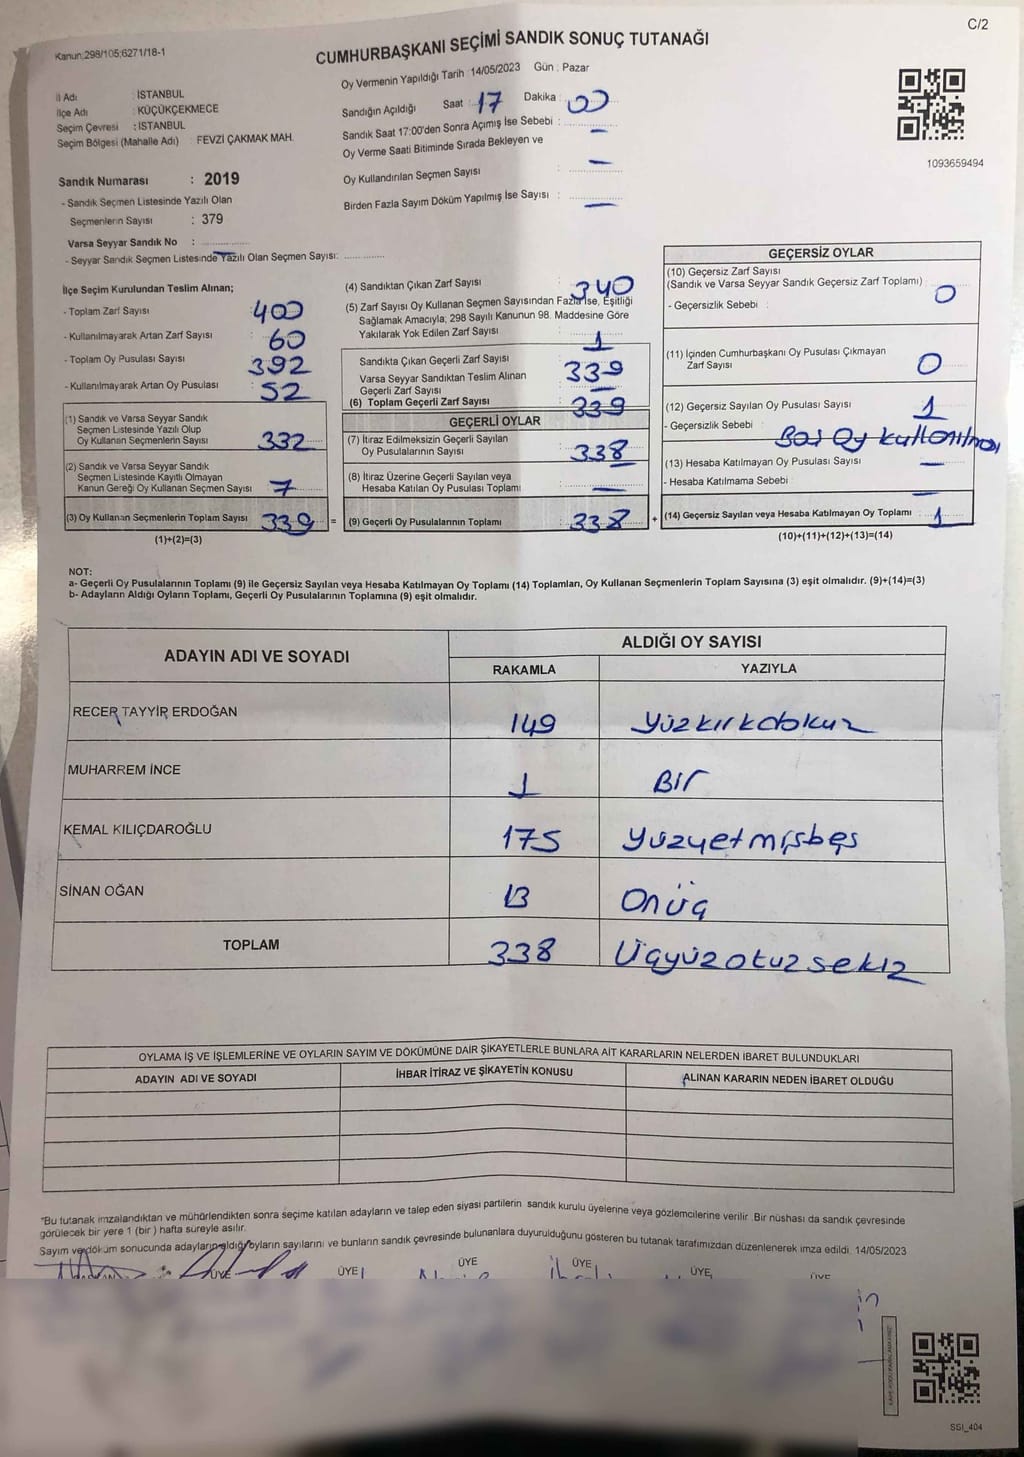 C/2
Kanun:298/105;6271/18-1
CUMHURBAŞKANI SEÇİMİ SANDIK SONUÇ TUTANAĞI
Oy Vermenin Yapıldığı Tarih :14/05/2023 Gün : Pazar
İl Adı : İSTANBUL
İlçe Adı : KÜÇÜKÇEKMECE
Seçim Çevresi : İSTANBUL
Seçim Bölgesi (Mahalle Adı) : FEVZİ ÇAKMAK MAH.
Sandığın Açıldığı Saat : 17 Dakika : 00
Sandık Saat 17:00'den Sonra Açımış İse Sebebi : —
Oy Verme Saati Bitiminde Sırada Bekleyen ve
Oy Kullandırılan Seçmen Sayısı : —
Birden Fazla Sayım Döküm Yapılmış İse Sayısı : —
1093659494
Sandık Numarası : 2019
- Sandık Seçmen Listesinde Yazılı Olan
Seçmenlerin Sayısı : 379
Varsa Seyyar Sandık No : —
- Seyyar Sandık Seçmen Listesinde Yazılı Olan Seçmen Sayısı:
İlçe Seçim Kurulundan Teslim Alınan;
- Toplam Zarf Sayısı : 400
- Kullanılmayarak Artan Zarf Sayısı : 60
- Toplam Oy Pusulası Sayısı : 392
- Kullanılmayarak Artan Oy Pusulası : 52
(1) Sandık ve Varsa Seyyar Sandık
Seçmen Listesinde Yazılı Olup
Oy Kullanan Seçmenlerin Sayısı : 332
(2) Sandık ve Varsa Seyyar Sandık
Seçmen Listesinde Kayıtlı Olmayan
Kanun Gereği Oy Kullanan Seçmen Sayısı : 7
(3) Oy Kullanan Seçmenlerin Toplam Sayısı : 339 =
(1)+(2)=(3)
(4) Sandıktan Çıkan Zarf Sayısı : 340
(5) Zarf Sayısı Oy Kullanan Seçmen Sayısından Fazla İse, Eşitliği
Sağlamak Amacıyla; 298 Sayılı Kanunun 98. Maddesine Göre
Yakılarak Yok Edilen Zarf Sayısı : 1
Sandıkta Çıkan Geçerli Zarf Sayısı : 339
Varsa Seyyar Sandıktan Teslim Alınan
Geçerli Zarf Sayısı : —
(6) Toplam Geçerli Zarf Sayısı : 339
GEÇERLİ OYLAR
(7) İtiraz Edilmeksizin Geçerli Sayılan
Oy Pusulalarının Sayısı : 338
(8) İtiraz Üzerine Geçerli Sayılan veya
Hesaba Katılan Oy Pusulası Toplamı : —
(9) Geçerli Oy Pusulalarının Toplamı : 338 +
GEÇERSİZ OYLAR
(10) Geçersiz Zarf Sayısı
(Sandık ve Varsa Seyyar Sandık Geçersiz Zarf Toplamı) : 0
- Geçersizlik Sebebi :
(11) İçinden Cumhurbaşkanı Oy Pusulası Çıkmayan
Zarf Sayısı : 0
(12) Geçersiz Sayılan Oy Pusulası Sayısı : 1
- Geçersizlik Sebebi : Boş Oy kullanılması
(13) Hesaba Katılmayan Oy Pusulası Sayısı : —
- Hesaba Katılmama Sebebi : —
(14) Geçersiz Sayılan veya Hesaba Katılmayan Oy Toplamı : 1
(10)+(11)+(12)+(13)=(14)
NOT:
a- Geçerli Oy Pusulalarının Toplamı (9) ile Geçersiz Sayılan veya Hesaba Katılmayan Oy Toplamı (14) Toplamları, Oy Kullanan Seçmenlerin Toplam Sayısına (3) eşit olmalıdır. (9)+(14)=(3)
b- Adayların Aldığı Oyların Toplamı, Geçerli Oy Pusulalarının Toplamına (9) eşit olmalıdır.
ADAYIN ADI VE SOYADI ALDIĞI OY SAYISI
RAKAMLA YAZIYLA
RECEP TAYYİP ERDOĞAN 149 Yüzkırkdokuz
MUHARREM İNCE 1 Bir
KEMAL KILIÇDAROĞLU 175 Yüzyetmişbeş
SİNAN OĞAN 13 Onüç
TOPLAM 338 Üçyüzotuzsekiz
OYLAMA İŞ VE İŞLEMLERİNE VE OYLARIN SAYIM VE DÖKÜMÜNE DAİR ŞİKAYETLERLE BUNLARA AİT KARARLARIN NELERDEN İBARET BULUNDUKLARI
ADAYIN ADI VE SOYADI İHBAR İTİRAZ VE ŞİKAYETİN KONUSU ALINAN KARARIN NEDEN İBARET OLDUĞU
*Bu tutanak imzalandıktan ve mühürlendikten sonra seçime katılan adayların ve talep eden siyasi partilerin sandık kurulu üyelerine veya gözlemcilerine verilir. Bir nüshası da sandık çevresinde
görülecek bir yere 1 (bir) hafta süreyle asılır.
Sayım ve döküm sonucunda adayların aldığı oyların sayılarını ve bunların sandık çevresinde bulunanlara duyurulduğunu gösteren bu tutanak tarafımızdan düzenlenerek imza edildi. 14/05/2023
ÜYE ÜYE ÜYE ÜYE ÜYE ÜYE
SSI_404